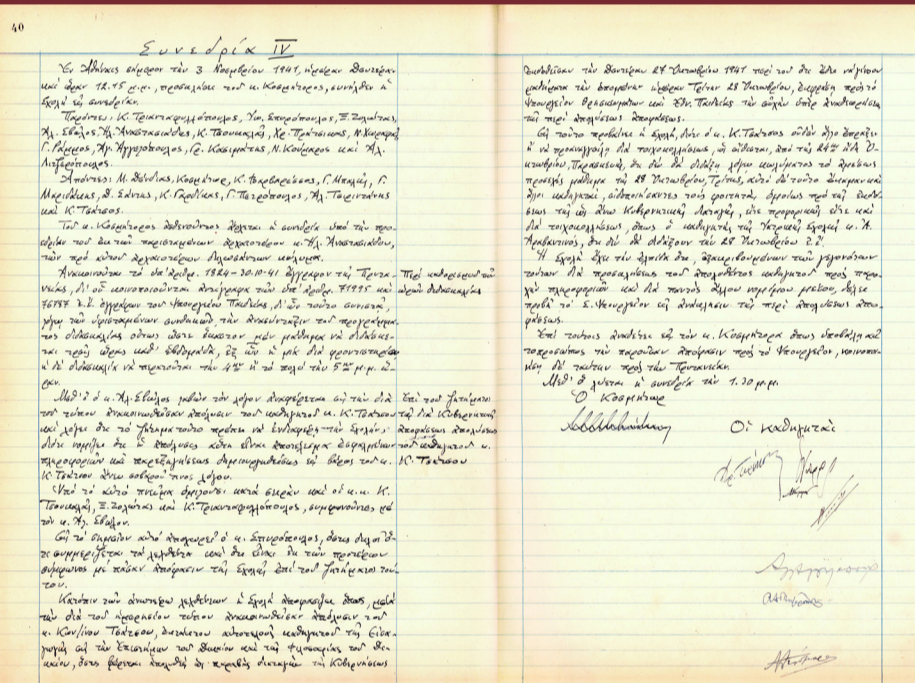 40
Συνεδρία IV
Ἐν Ἀθήναις σήμερον τὴν 3 Νοεμβρίου 1941, ἡμέραν Δευτέραν
καὶ ὥραν 12.15 μ.μ., προσκλήσει τοῦ κ. Κοσμήτορος, συνῆλθεν ἡ
Σχολὴ εἰς συνεδρίαν.
Παρόντες: Κ. Τριανταφυλλόπουλος, Σπυρόπουλος, Ξ. Ζολώτας,
Ἀλ. Σβῶλος, Ἠλ. Ἀναστασιάδης, Κ. Τσουκαλᾶς, Χρ. Πράτσικας, Ν.
Γ. Ράμμος, Ἀγγ. Ἀγγελόπουλος, Γρ. Κασιμάτης, Ν. Κούμαρος καὶ Ἀλ.
Λιτζερόπουλος.
Ἀπόντες: Μ. Δένδιας, Κοσμήτωρ, Κ. Βαρβαρέσσος, Γ. Μπαλῆς, Γ.
Μαριδάκης, Δ. Σάντης, Κ. Γαρδίκας, Γ. Πετρόπουλος, Ἀλ.
καὶ Κ. Τσάτσος.
Τοῦ κ. Κοσμήτορος ἀσθενοῦντος, ἄρχεται ἡ συνεδρία ὑπὸ τὴν προ-
εδρίαν τοῦ ἐκ τῶν παρισταμένων ἀρχαιοτέρου κ. Ἠλ. Ἀναστασιάδου,
τῶν πρὸ αὐτοῦ ἀρχαιοτέρων δηλωσάντων κώλυμα.
Ἀνακοινοῦται τὸ ὑπ' ἀριθμ. 1924-30-10-41 ἔγγραφον τῆς Πρυτα-
νείας, δι' οὗ κοινοποιοῦνται ἀντίγραφα τῶν ὑπ' ἀριθμ. 71995 καὶ
76787 ἐ.ἔ. ἐγγράφων τοῦ Ὑπουργείου Παιδείας, δι' ὧν τοῦτο συνιστᾷ,
λόγῳ τῶν ὑφισταμένων συνθηκῶν, τὴν ἀνακατάταξιν τοῦ προγράμμα-
τος διδασκαλίας οὕτως ὥστε ἕκαστον μὲν μάθημα νὰ διδάσκε-
ται τρεῖς ὥρας καθ' ἑβδομάδα, ἐξ ὧν ἡ μία διὰ φροντιστήριον
ἡ δὲ διδασκαλία νὰ περατοῦται τὴν 4ην ἢ τὸ πολὺ τὴν 5ην μ.μ. ὥ-
ραν.
Περὶ καθορισμοῦ τῶν
ὡρῶν διδασκαλίας
Μεθ' ὃ ὁ κ. Ἀλ. Σβῶλος λαβὼν τὸν λόγον ἀναφέρεται εἰς τὴν διὰ
τοῦ τύπου ἀνακοινωθεῖσαν ἀπόλυσιν τοῦ καθηγητοῦ κ. Κ. Τσάτσου
καὶ λέγει ὅτι τὸ ζήτημα τοῦτο πρέπει νὰ ἐνδιαφέρῃ τὴν Σχολήν,
διότι νομίζει ὅτι ἡ ἀπόλυσις αὕτη εἶναι ἀποτέλεσμα ἐσφαλμένων
πληροφοριῶν καὶ παρεξηγήσεως δημιουργηθείσης εἰς βάρος τοῦ κ.
Κ. Τσάτσου ἄνευ σοβαροῦ τινος λόγου.
Ἐπὶ τοῦ ζητήματος
τῆς διὰ Κυβερνητικῆς
ἀποφάσεως ἀπολύσεως
τοῦ καθηγητοῦ κ.
Κ. Τσάτσου
Ὑπὸ τὸ αὐτὸ πνεῦμα ὁμιλοῦσι κατὰ σειρὰν καὶ οἱ κ.κ. Κ.
Τσουκαλᾶς, Ξ. Ζολώτας καὶ Κ. Τριανταφυλλόπουλος, συμφωνοῦντες μὲ
τὸν κ. Ἀλ. Σβῶλον.
Εἰς τὸ σημεῖον αὐτὸ ἀποχωρεῖ ὁ κ. Σπυρόπουλος, ὅστις δηλοῖ ὅ-
τι συμμερίζεται τὰ λεχθέντα καὶ ὅτι εἶναι ἐκ τῶν προτέρων
σύμφωνος μὲ πᾶσαν ἀπόφασιν τῆς Σχολῆς ἐπὶ τοῦ ζητήματος τού-
του.
Κατόπιν τῶν ἀνωτέρω λεχθέντων ἡ Σχολὴ ἀποφασίζει ὅπως, μετὰ
τὴν διὰ τοῦ ἡμερησίου τύπου ἀνακοινωθεῖσαν ἀπόλυσιν τοῦ
κ. Κων/ίνου Τσάτσου, ἐκτάκτου αὐτοτελοῦς καθηγητοῦ τῆς Εἰσα-
γωγῆς εἰς τὴν Ἐπιστήμην τοῦ Δικαίου καὶ τῆς Φιλοσοφίας τοῦ Δι-
καίου, ὅστις φέρεται ἀπολυθεὶς ὡς παραβὰς διαταγὴν τῆς Κυβερνήσεως
ἐκδοθεῖσαν τὴν Δευτέραν 27 Ὀκτωβρίου 1941 περὶ τοῦ ὅτι ἔδει νὰ γίνουν
μαθήματα τὴν ἑπομένην ἡμέραν Τρίτην 28 Ὀκτωβρίου, ἐκφράσῃ πρὸς τὸ
Ὑπουργεῖον Θρησκευμάτων καὶ Ἐθν. Παιδείας τὴν εὐχὴν ὑπὲρ ἀνακλήσεως
τῆς περὶ ἀπολύσεως ἀποφάσεως.
Εἰς τοῦτο προβαίνει ἡ Σχολή, διότι ὁ κ. Κ. Τσάτσος οὐδὲν ἄλλο ἔπραξε
ἢ νὰ προαναγγείλῃ διὰ τοιχοκολλήσεως, ὡς εἴθισται, ἀπὸ τῆς 24ης Ὀ-
κτωβρίου, Παρασκευῆς, ὅτι δὲν θὰ διδάξῃ λόγῳ κωλύματος τὸ ἀμέσως
προσεχὲς μάθημα τῆς 28 Ὀκτωβρίου, Τρίτης, αὐτὸ δὲ τοῦτο ἔπραξαν καὶ
ἄλλοι καθηγηταί, εἰδοποιήσαντες τοὺς φοιτητάς, ὁμοίως πρὸ τῆς ἐκδό-
σεως τῆς ὡς ἄνω Κυβερνητικῆς διαταγῆς, εἴτε προφορικῶς εἴτε καὶ
διὰ τοιχοκολλήσεως, ὅπως ὁ καθηγητὴς τῆς Ἰατρικῆς Σχολῆς κ. Ἀ.
Ἀραβαντινός, ὅτι δὲν θὰ διδάξουν τὴν 28 Ὀκτωβρίου ἐ.ἔ.
Ἡ Σχολὴ ἔχει τὴν ἐλπίδα ὅτι, ἐξακριβουμένων τῶν γεγονότων
τούτων διὰ προσκλήσεως τοῦ ἀπολυθέντος καθηγητοῦ πρὸς παρο-
χὴν πληροφοριῶν καὶ διὰ παντὸς ἄλλου νομίμου μέσου, θέλει
προβῆ τὸ Σ. Ὑπουργεῖον εἰς ἀνάκλησιν τῆς περὶ ἀπολύσεως ἀπο-
φάσεως.
Ἐπὶ τούτοις ἀναθέτει εἰς τὸν κ. Κοσμήτορα ὅπως ὑποβάλῃ αὐ-
τοπροσώπως τὴν παροῦσαν ἀπόφασιν πρὸς τὸ Ὑπουργεῖον, κοινοποι-
ήσῃ δὲ ταύτην πρὸς τὴν Πρυτανείαν.
Μεθ' ὃ λύεται ἡ συνεδρία τὴν 1.30 μ.μ.
Ὁ Κοσμήτωρ
Οἱ καθηγηταί